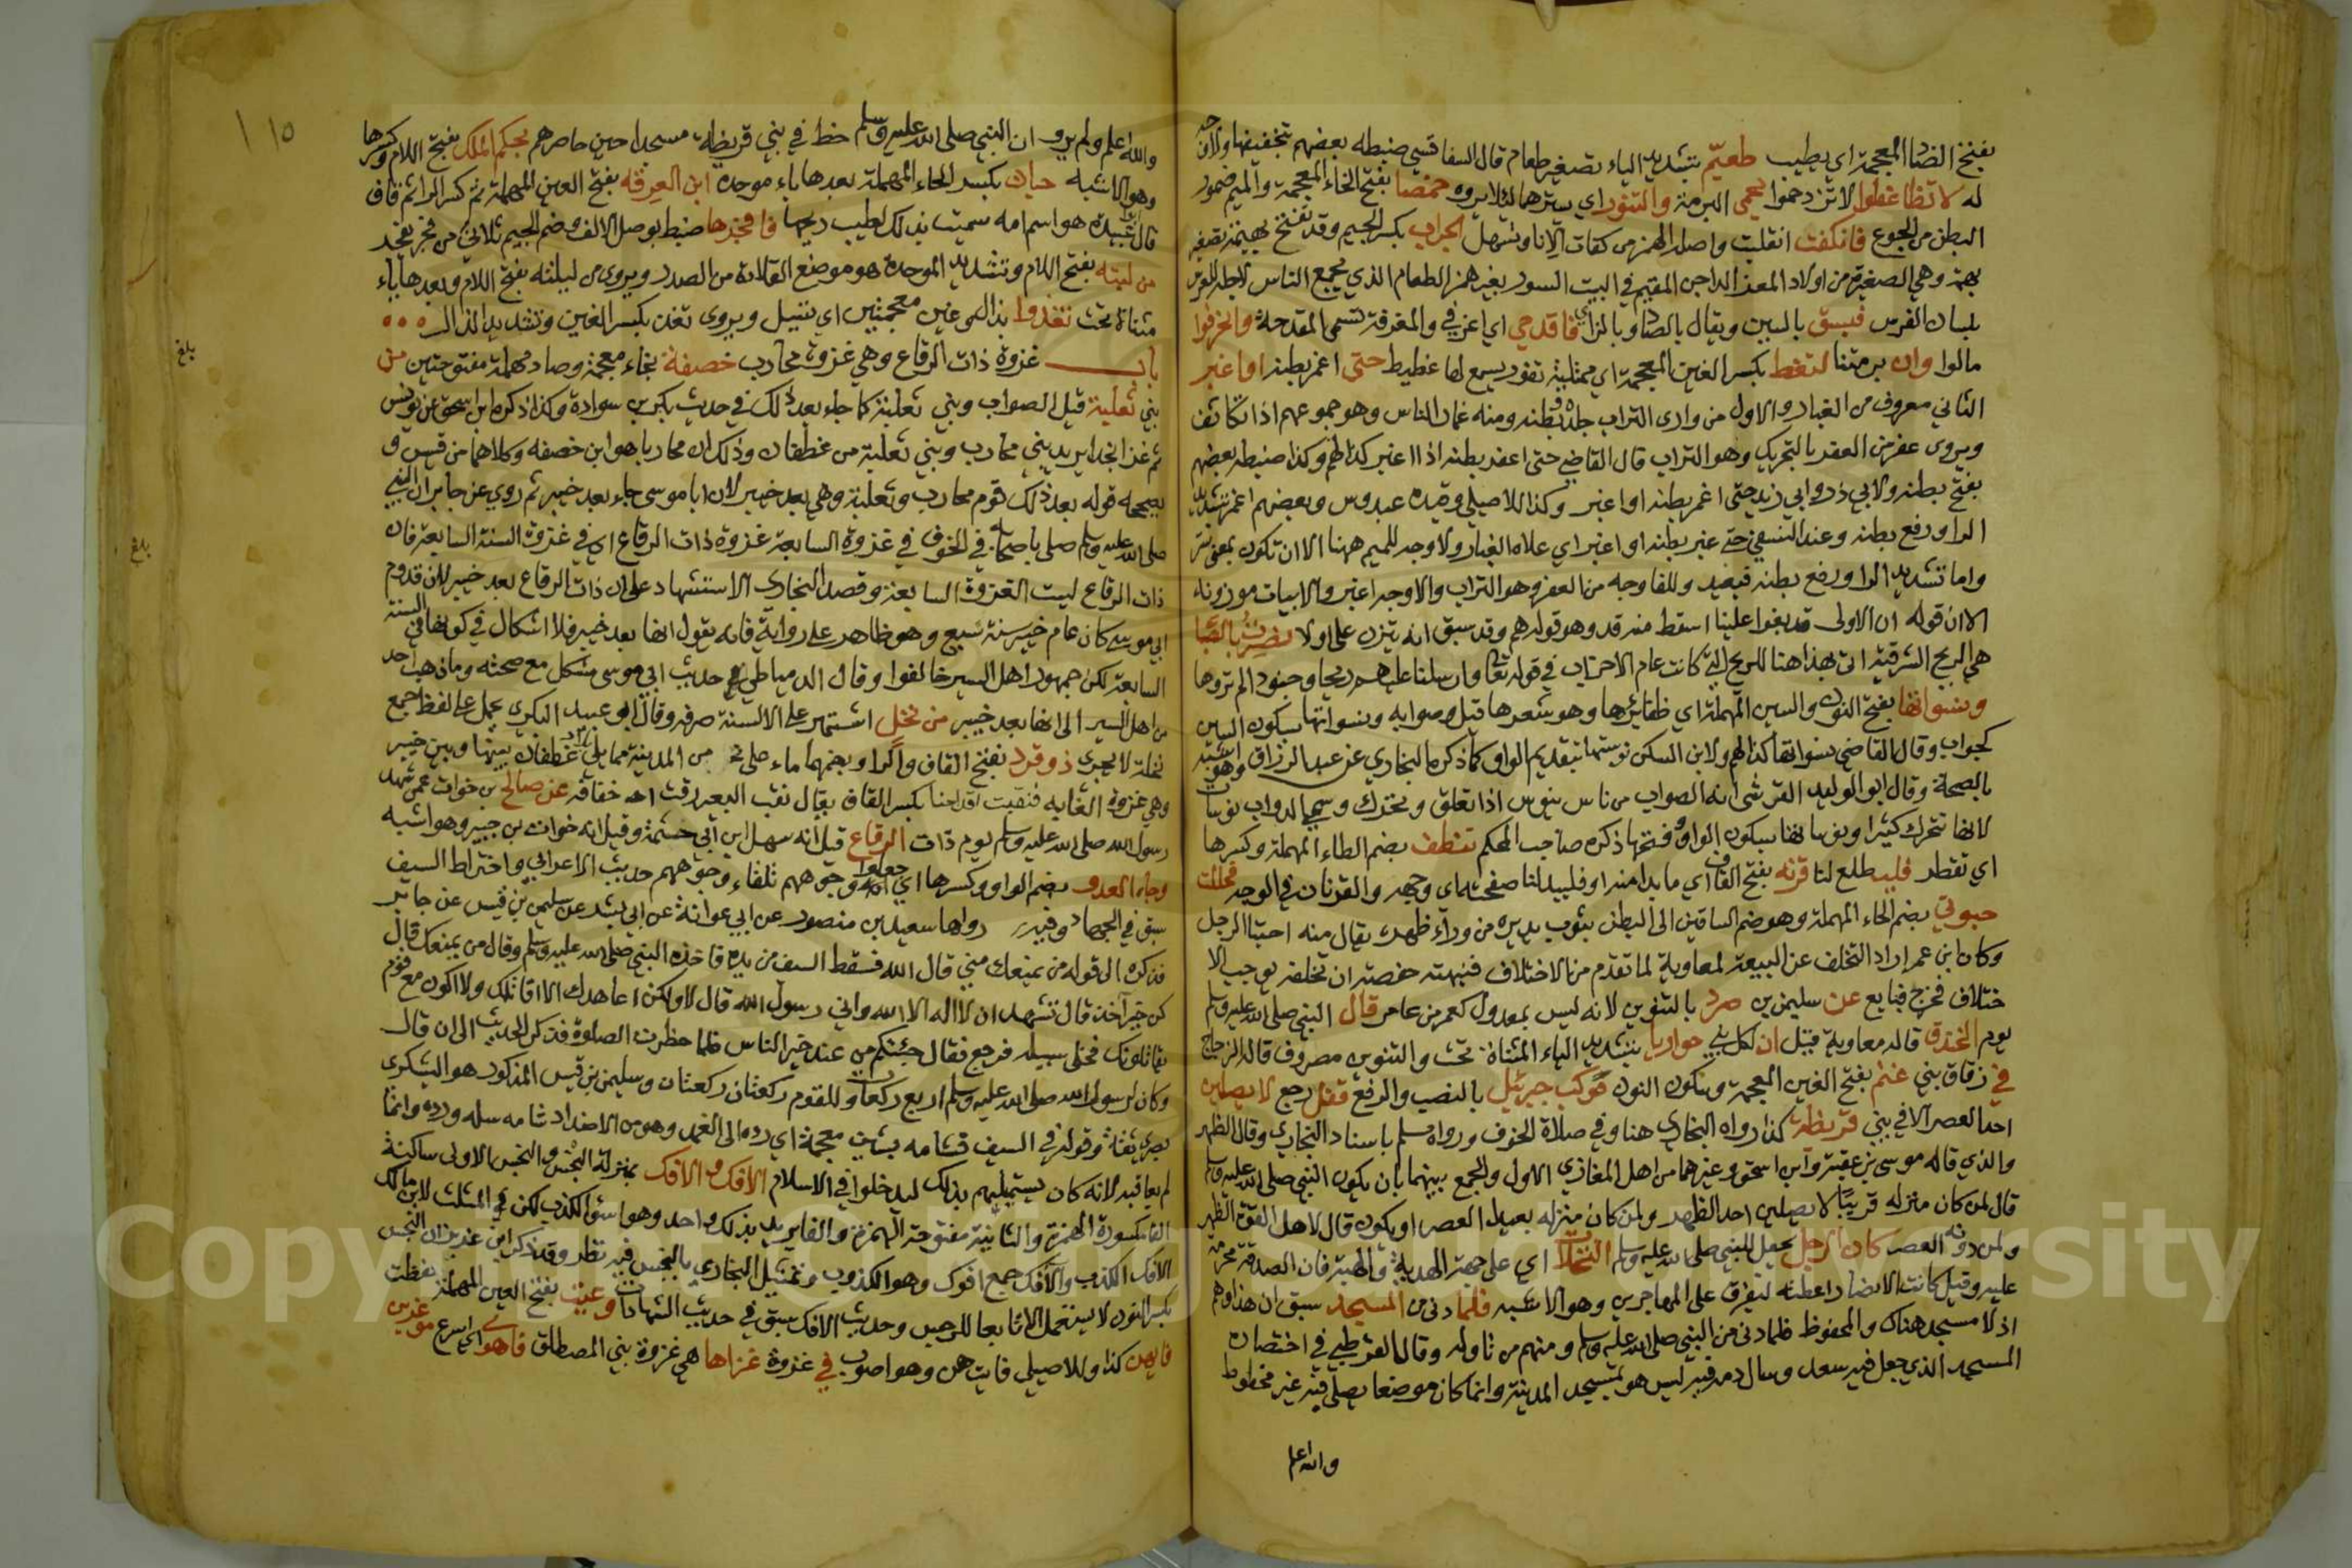 بفتح الضاد المعجمة اي يطيب طعيّم بتشديد الياء تصغير طعام قال السفاقسي ضبطه بعضهم بتخفيفها ولا وجه
له لا تظاغطوا لا تزدحموا يخمي البرمة والتنور اي يسترهما ليلا يروه خمصا بفتح الخاء المعجمة والميم ضمور
البطن من الجوع فانكفت انقلبت واصله الهمز من كفات الانا وتسهل الجراب بكسر الجيم وقد تفتح بهيمة تصغير
بهمة وهي الصغيرة من اولاد المعز الداجن المقيم في البيت السور بغير همز الطعام الذي يجمع الناس لاجله للعرس
بلسان الفرس فبسق بالسين ويقال بالصاد وبالزاي فاقدحي اي اغرفي والمغرفة تسمى المقدحة وانحرفوا
مالوا وان برمتنا لتغط بكسر الغين المعجمة اي ممتلية تفور يسمع لها غطيط حتى اغمر بطنه او اغبر
الثاني معروف من الغبار والاول من وارى التراب جلدة بطنه ومنه غمار الناس وهو جموعهم اذا تكاثف
ويروى عفر من العفر بالتحريك وهو التراب قال القاضي حتى اعفر بطنه اذا اغبر كذا لهم وكذا ضبطه بعضهم
بفتح بطنه ولابي ذر وابي زيد حتى اغمر بطنه او اغبر وكذا للاصيلي وقيده عبدوس وبعضهم اغمر بتشديد
الرا ورفع بطنه وعند النسفي حتى غبر بطنه او اغبر اي علاه الغبار ولا وجه للميم ههنا الا ان تكون بمعنى ستر
واما تشديد الرا ورفع بطنه فبعيد وللفا وجه من العفر وهو التراب والاوجه اغبر والابيات موزونة
الا ان قوله ان الاولى قد بغوا علينا اسقط منه قد وهو قولهم وقد سبق انه يتزن على اولا نصرت بالصبا
هي الريح الشرقية اتى بهذا هنا للريح التي كانت عام الاحزاب في قوله تعالى وارسلنا عليهم ريحا وجنودا لم تروها
ونسواتها بفتح النون والسين المهملة اي ظفائرها وهو شعرها قيل وصوابه ونسواتها بسكون السين
كجواب وقال القاضي نسواتها كذا لهم ولابن السكن نوساتها بتقديم الواو كما ذكره البخاري عن عبد الرزاق وهو اشبه
بالصحة وقال ابو الوليد القرشي انه الصواب من ناس ينوس اذا تعلق وتحرك وسمي الدواب نوسات
لانها تتحرك كثيرا ونوساتها بسكون الواو وفتحها ذكره صاحب المحكم تنطف بضم الطاء المهملة وكسرها
اي تقطر فليطلع لنا قرنه بفتح القاف اي ما بدا منه او فليبد لنا صفحته اي وجهه والقرنان في الوجه فحللت
حبوتي بضم الحاء المهملة وهو ضم الساقين الى البطن بثوب يديره من وراء ظهره يقال منه احتبا الرجل
وكان ابن عمر اراد التخلف عن البيعة لمعاوية لما تقدم من الاختلاف فنبهته حفصة ان تخلفه يوجب الا
ختلاف فخرج فبايع عن سليمن بن صرد بالتنوين لانه ليس بمعدول كعمر من عامر قال النبي صلى الله عليه وسلم
يوم الخندق قاله معاوية قبيل ان لكل نبي حواريا بتشديد الياء المثناة تحت والتنوين مصروف قاله الزجاج
في زقاق بني غنم بفتح الغين المعجمة وسكون النون موكب جبرئيل بالنصب والرفع قفل رجع لا يصلين
احد العصر الا في بني قريظة كذا رواه البخاري هنا وفي صلاة الخوف ورواه مسلم باسناد البخاري وقال الظهر
والذي قاله موسى بن عقبة وابن اسحق وغيرهما من اهل المغازي الاول والجمع بينهما بان يكون النبي صلى الله عليه وسلم
قال لمن كان منزله قريبا لا يصلين احد الظهر ولمن كان منزله بعيدا العصر او يكون قال لاهل القوة الظهر
ولمن دونه العصر كان الرجل يجعل للنبي صلى الله عليه وسلم النخلات اي على جهة الهدية والهبة فان الصدقة محرمة
عليه وقيل كانت الانصار اعطته ليفرق على المهاجرين وهو الاشبه فلما دنى من المسجد سبق ان هذا وهم
اذ لا مسجد هناك والمحفوظ فلما دنى من النبي صلى الله عليه وسلم ومنهم من تاوله وقال القرطبي في اختصاره
المسجد الذي جعل فيه سعد وسال دمه فيه ليس هو بمسجد المدينة وانما كان موضعا يصلى فيه غير مخطوط
والله اعلم
١١٥
والله اعلم ولم يرو ان النبي صلى الله عليه وسلم خط في بني قريظة مسجدا حين حاصرهم بحكم الملك بفتح اللام وكسرها
وهو الاشبه حبان بكسر الحاء المهملة بعدها باء موحدة ابن العرقة بفتح العين المهملة ثم كسر الراء ثم قاف
قال عبيدة هو اسم امه سميت بذلك لطيب ريحها فافجرها ضبط بوصل الالف وضم الجيم ثلاثي من فجر يفجر
من لبته بفتح اللام وتشديد الموحدة هو موضع القلادة من الصدر ويروى من ليلته بفتح اللام وبعدها ياء
مثناة تحت تغذوا بذال وغين معجمتين اي تسيل ويروى تغذ بكسر الغين وتشديد الذال
باب غزوة ذات الرقاع وهي غزوة محارب خصفة بخاء معجمة وصاد مهملة مفتوحتين من
بني ثعلبة قيل الصواب وبني ثعلبة كما جاء بعد ذلك في حديث بكر بن سوادة وكذا ذكره ابن اسحق عن يونس
ثم غزا نجدا يريد بني محارب وبني ثعلبة من غطفان وذلك ان محاربا هو ابن خصفه وكلاهما من قيس و
يصححه قوله بعد ذلك قوم محارب وثعلبة وهي بعد خيبر لان ابا موسى جاء بعد خيبر ثم روي عن جابر ان النبي
صلى الله عليه وسلم صلى باصحابه في الخوف في غزوة السابعة غزوة ذات الرقاع اي في غزوة السنة السابعة فان
ذات الرقاع ليست الغزوة السابعة وقصد البخاري الاستشهاد على ان ذات الرقاع بعد خيبر لان قدوم
ابي موسى كان عام خيبر سنة سبع وهو ظاهر على رواية فانه يقول انها بعد خيبر فلا اشكال في كونها في السنة
السابعة لكن جمهور اهل السير خالفوا وقال الدمياطي حديث ابي موسى مشكل مع صحته وما ذهب احد
من اهل السير الى انها بعد خيبر من نخل اشتهر على الالسنة صرفه وقال ابو عبيد البكري يحمل على لفظ جمع
نخلة لا يجرى ذو قرد بفتح القاف والرا وبضمهما ماء على من المدينة مما يلي بلاد غطفان بينها وبين خيبر
وهي غزوة الغابه فنقبت اقدامنا بكسر القاف يقال نقب البعير رقت اخفافه عن صالح بن خوات عمن شهد
رسول الله صلى الله عليه وسلم يوم ذات الرقاع قيل انه سهل ابن ابي حشمة وقيل انه خوات بن جبير وهو اشبه
وجاه العدو بضم الواو وكسرها اي جعلوا وجوههم تلقاء وجوههم حديث الاعرابي واختراط السيف
سبق في الجهاد وفيه رواها سعيد بن منصور عن ابي عوانة عن ابي بشر عن سليمن بن قيس عن جابر
فذكره الى قوله من يمنعك مني قال الله فسقط السيف من يده فاخذه النبي صلى الله عليه وسلم وقال من يمنعك قال
كن خير آخذ قال تشهد ان لا اله الا الله واني رسول الله قال لا ولكن اعاهدك الا اقاتلك ولا اكون مع قوم
يقاتلونك فخلى سبيله فرجع فقال جئتكم من عند خير الناس فلما حظرت الصلوة فذكر الحديث الى ان قال
وكان لرسول الله صلى الله عليه وسلم اربع ركعات وللقوم ركعتان ركعتان وسليمن بن قيس المذكور هو اليشكري
بصري ثقة وقوله في السيف فشامه بشين معجمة اي رده الى الغمد وهو من الاضداد شامه سله ورده وانما
لم يعاقبه لانه كان يستميلهم بذلك ليدخلوا في الاسلام الافك والافك بمنزلة النجس والنجس الاولى ساكنة
الفا مكسورة الهمزة والثانية مفتوحة الهمزة والفا يريد بذلك واحد وهو اسوأ الكذب لكن في المثلث لابن مالك
الافك الكذب والافك جمع افوك وهو الكذوب وتمثيل البخاري بالنجس فيه نظر وقد ذكر ابن عزيز ان النجس
بكسر النون لا يستعمل الا تابعا للرجس وحديث الافك سبق في حديث الشهادات وعيت بفتح العين المهملة حفظت
فايهن كذا وللاصيلي فايتهن وهو اصوب في غزوة غزاها هي غزوة بني المصطلق فاهوى اي اسرع موغرين
بلغ
بلغ
Copy King Saud University